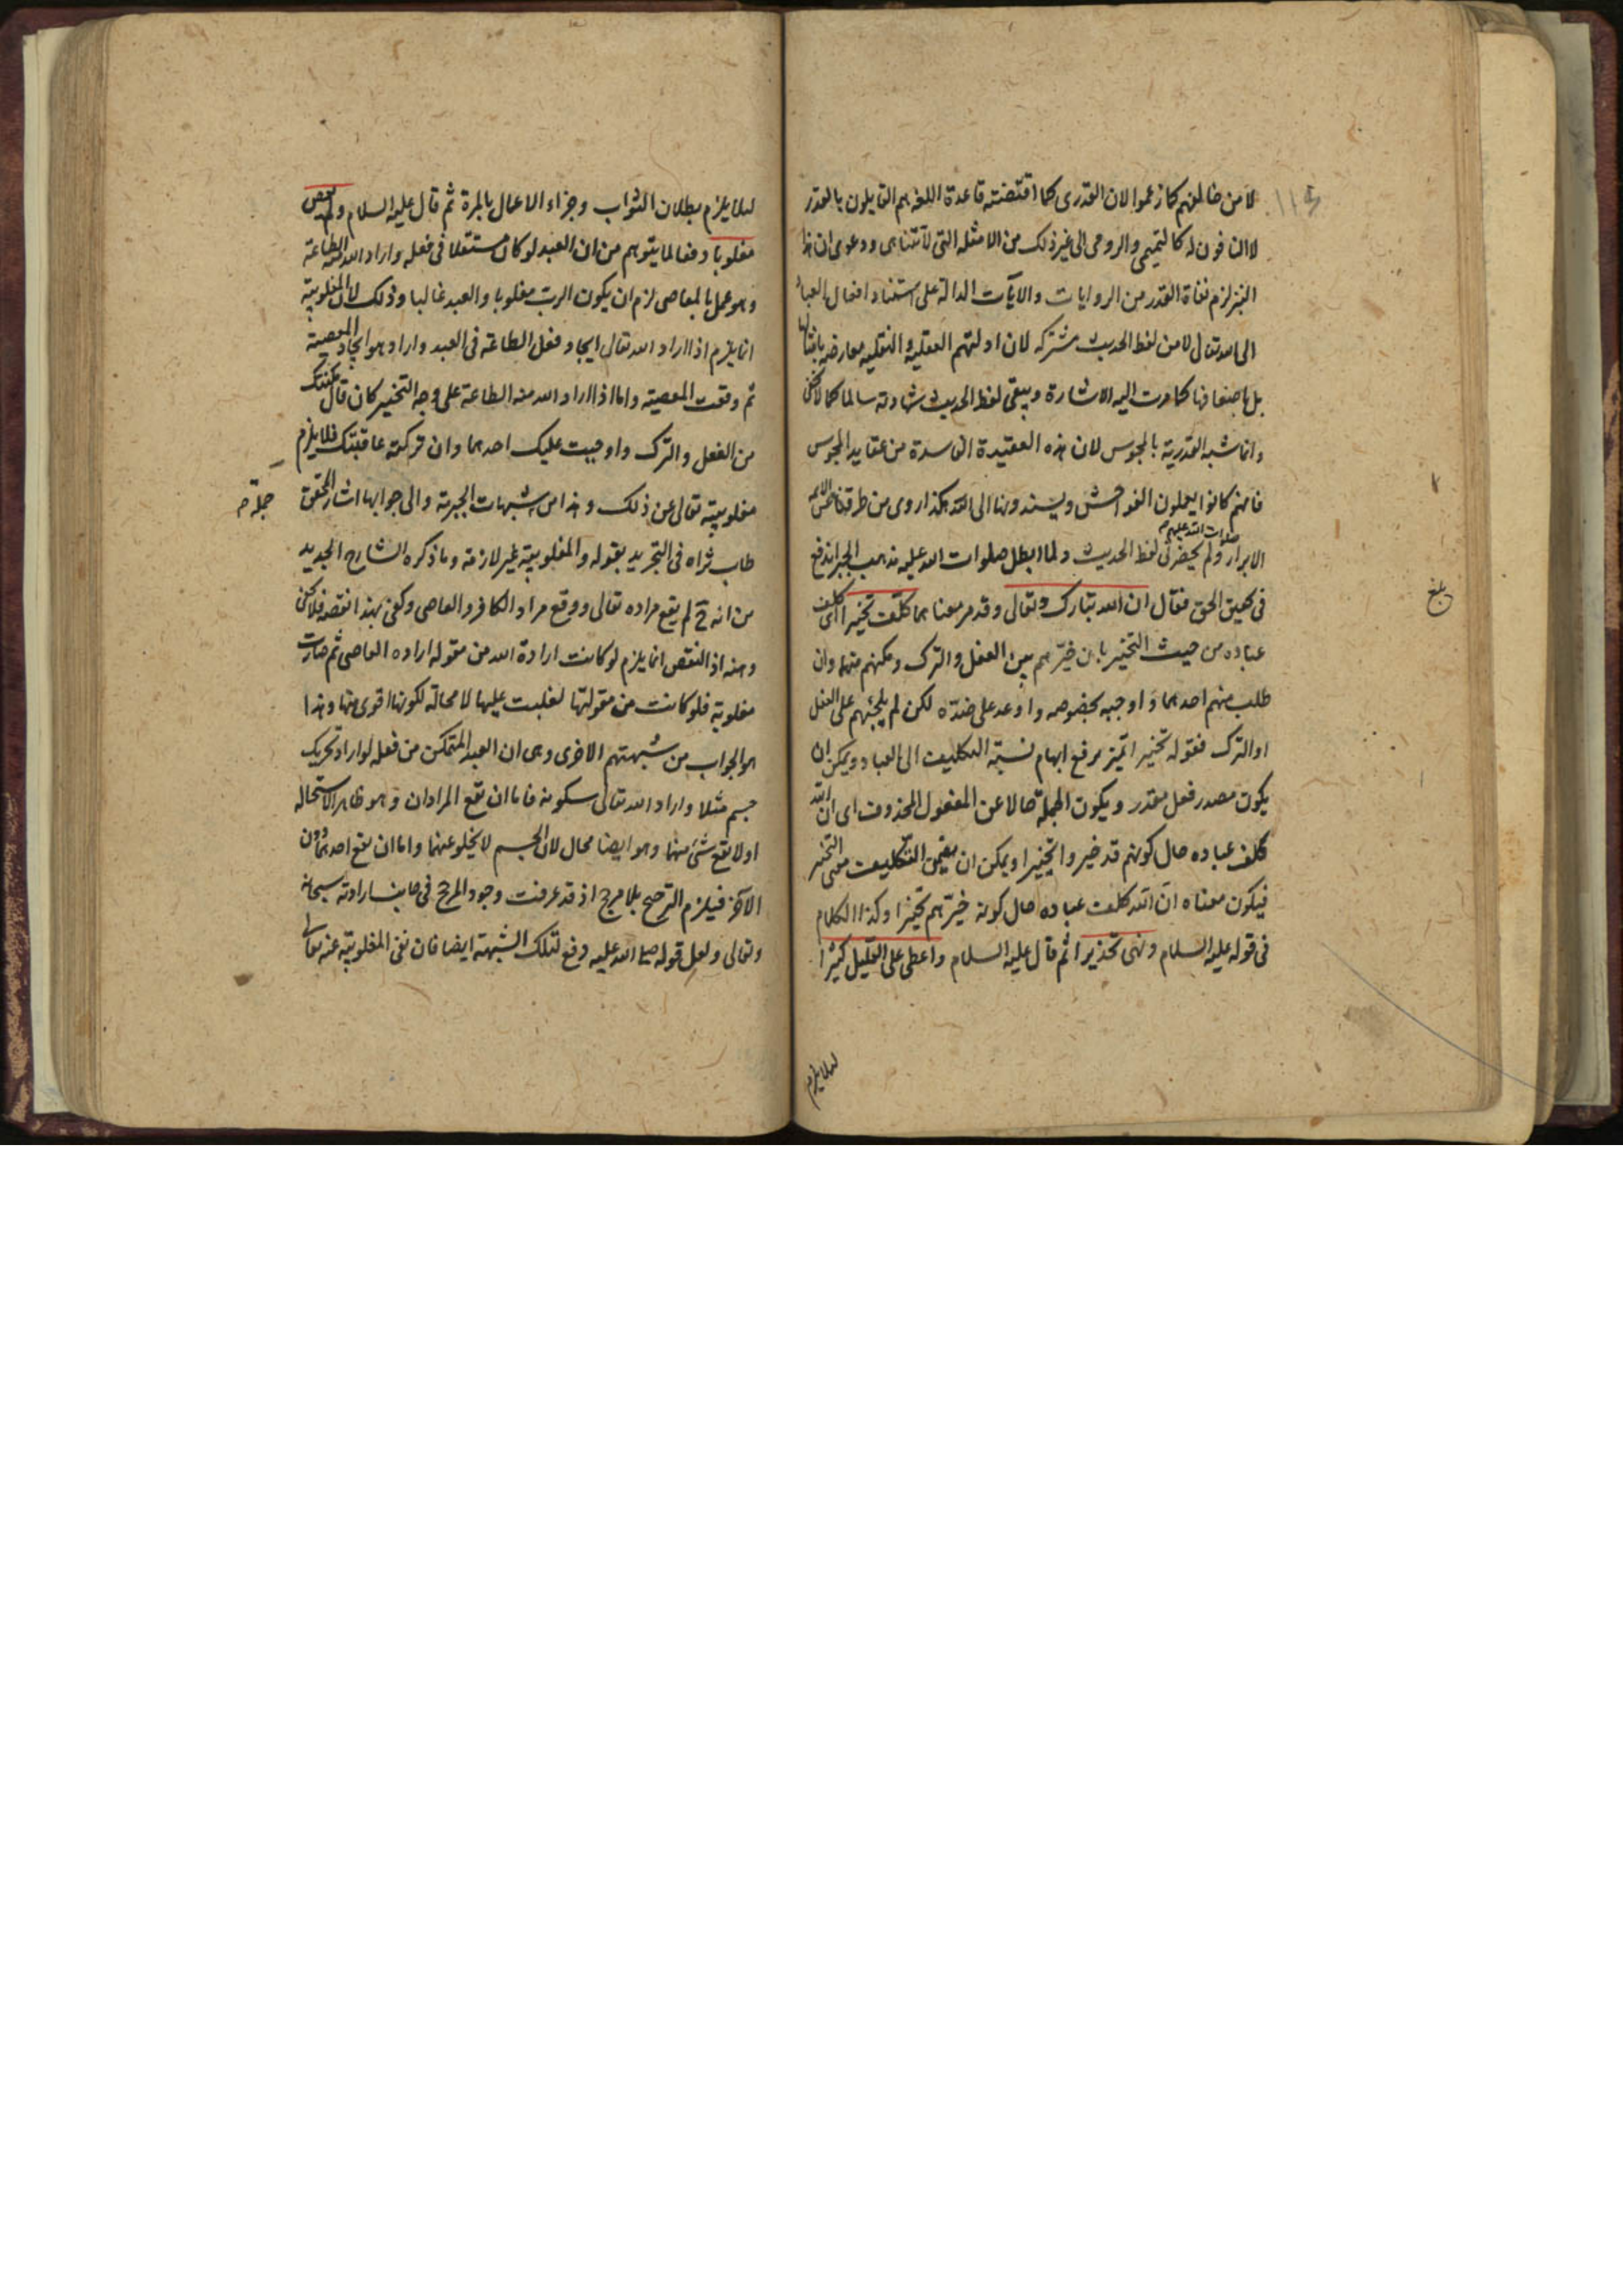 لا من خالفهم كما زعموا لان القدرى كما اقتضته قاعدة اللغة هم القايلون بالقدر
لا النافون له كالتيمى والرومى الى غير ذلك من الامثلة التى لا تتناهى ودعوى ان هذا
النبز لزم نفاة القدر من الروايات والآيات الدالة على استناد افعال العباد
الى الله تعالى لا من لفظ الحديث مشتركه لان ادلتهم العقلية و النقليه معارضه بامثالها
بل باضعافها كما مرت اليه الاشارة ويبقى لفظ الحديث شهادته سالما كما لا يخفى
وانما شبه القدرية بالمجوس لان هذه العقيدة الفاسدة من عقايد المجوس
فانهم كانوا يعملون الفواحش ويسندونها الى الله هكذا روى من طرقنا عن الائمه
الابرار صلوات الله عليهم ولم يحضرنى لفظ الحديث ولما ابطل صلوات الله عليه مذهب الجبر اندفع
فى تحقيق الحق فقال ان الله تبارك وتعالى وقد مر معناهما كلّف تخييرا اى كلف
عباده من حيث التخيير بان خيّرهم بين الفعل والترك ومكنهم منهما وان
طلب منهم احدهما و اوجبه بخصوصه واوعد على ضدّه لكن لم يلجئهم على الفعل
او الترك فقوله تخييرا تميز يرفع ابهام نسبة التكليف الى العباد ويمكن ان
يكون مصدر فعل مقدر ويكون الجملة حالا عن المفعول المحذوف اى ان الله
كلف عباده حال كونهم قد خيروا تخييرا ويمكن ان يضمن التكليف معنى التخيير
فيكون معناه ان الله كلف عباده حال كونه خيّرهم تخييرا وكذا الكلام
فى قوله عليه السلام ونهى تحذيرا ثم قال عليه السلام واعطى على القليل كثيرا
لئلا يلزم
بلغ
لئلا يلزم بطلان الثواب وجزاء الاعمال بالمرة ثم قال عليه السلام ولم يعص
مغلوبا دفعا لما يتوهم من ان العبد لو كان مستقلا فى فعله واراد الله منه الطاعة
وهو عمل بالمعاصى لزم ان يكون الرب مغلوبا والعبد غالبا وذلك لان المغلوبية
انما يلزم اذا اراد الله تعالى ايجاد فعل الطاعة فى العبد واراد هو ايجاد المعصية
ثم وقعت المعصية واما اذا اراد الله منه الطاعة على وجه التخيير كان قال مكنتك
من الفعل والترك واوجبت عليك احدهما وان تركته عاقبتك فلا يلزم
مغلوبيته تعالى عن ذلك وهذا من شبهات الجبرية والى جوابها اشار المحقق
طاب ثراه فى التجريد بقوله والمغلوبية غير لازمة وما ذكره الشارح الجديد
من انه ح لم يقع مراده تعالى ووقع مراد الكافر والعاصى وكفى بهذا نقصه فلا يخفى
وهنه اذ النقص انما يلزم لو كانت ارادة الله من مقوله اراده العاصى ثم صارت
مغلوبة فلو كانت من مقولتها لغلبت عليها لا محالة لكونها اقوى منها وهذا
هو الجواب من شبهتهم الاخرى وهى ان العبد المتمكن من فعله لو اراد تحريك
جسم مثلا واراد الله تعالى سكونه فاما ان تقع المرادان وهو ظاهر الاستحاله
او لا يقع شئ منهما وهو ايضا محال لان الجسم لا يخلو عنهما واما ان يقع احدهما دون
الآخر فيلزم الترجيح بلا مرجح اذ قد عرفت وجود المرجح فى جانب ارادته سبحانه
وتعالى ولعل قوله صلى الله عليه دفع لتلك الشبهة ايضا فان نفى المغلوبية عنه تعالى